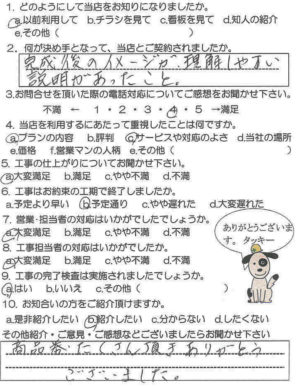 1. どのようにして当店をお知りになりましたか。
ⓐ以前利用して b.チラシを見て c.看板を見て d.知人の紹介
e.その他( )
2. 何が決め手となって、当店とご契約されましたか。
完成後のイメージが理解しやすい
説明があったこと。
3.お問合せを頂いた際の電話対応についてご感想をお聞かせ下さい。
不満 ← 1・2・3・④・5 →満足
4. 当店を利用するにあたって重視したことは何ですか。
ⓐプランの内容 b.評判 ⓒサービスや対応のよさ d.当社の場所
e.価格 f.営業マンの人柄 e.その他( )
5. 工事の仕上がりについてお聞かせ下さい。
ⓐ大変満足 b.満足 c.やや不満 d.不満
6. 工事はお約束の工期で終了しましたか。
a.予定より早い ⓑ予定通り c.やや遅れた d.大変遅れた
7. 営業・担当者の対応はいかがでしたでしょうか。
ⓐ大変満足 b.満足 c.やや不満 d.不満
8. 工事担当者の対応はいかがでしたか。
ⓐ大変満足 b.満足 c.やや不満 d.不満
9. 工事の完了検査は実施されましたでしょうか。
ⓐはい b.いいえ c.その他( )
10. お知合いの方をご紹介頂けますか。
a.是非紹介したい ⓑ紹介したい c.分からない d.したくない
その他紹介・ご意見・ご感想などございましたらお聞かせ下さい
商品券たくさん頂きありがとう
ございました。
ありがとうございま
す。タッキー